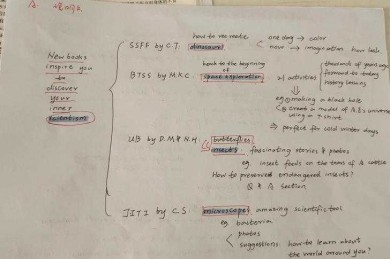 how to recreate
SSFF by C.T. dinosaurs < one day → color
now → imagination
New books
inspire you
to
discover
your
inner
scientists
back to the beginning
of
BTSS by M.K.C. space exploration 21 activities
thousands of years ago
forward to today
eg ① making a black hole
② create a model of universe
using a T-shirt
⇒ perfect for cold winter days
butterflies
UB by D.M & N.H. insects fascinating stories & photos
eg insect feeds on the tears of a
How to preserve endangered insects?
Q & A section
JITI by C.S. microscopes amazing scientific tools
eg bacteria
photos
suggestions: how to learn about
the world around you?